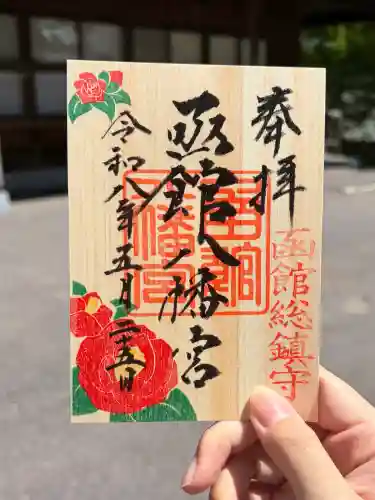 奉拝
函館総鎮守
函館八幡宮
函館
八幡宮
令和八年五月二十五日